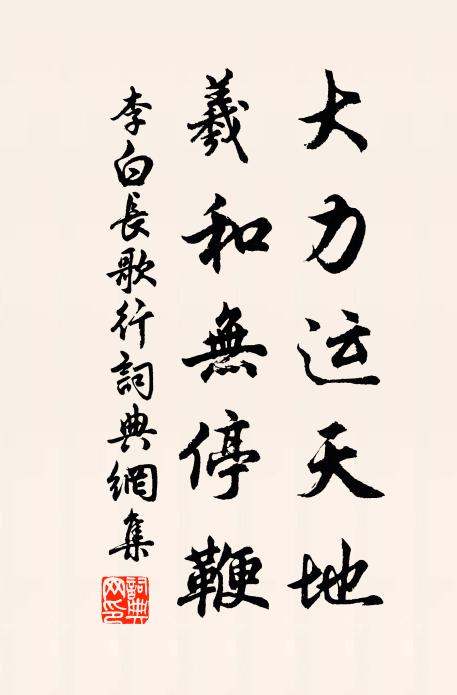 大力运天地
羲和無停鞭
李白長歌行詞典網集
詞典網印